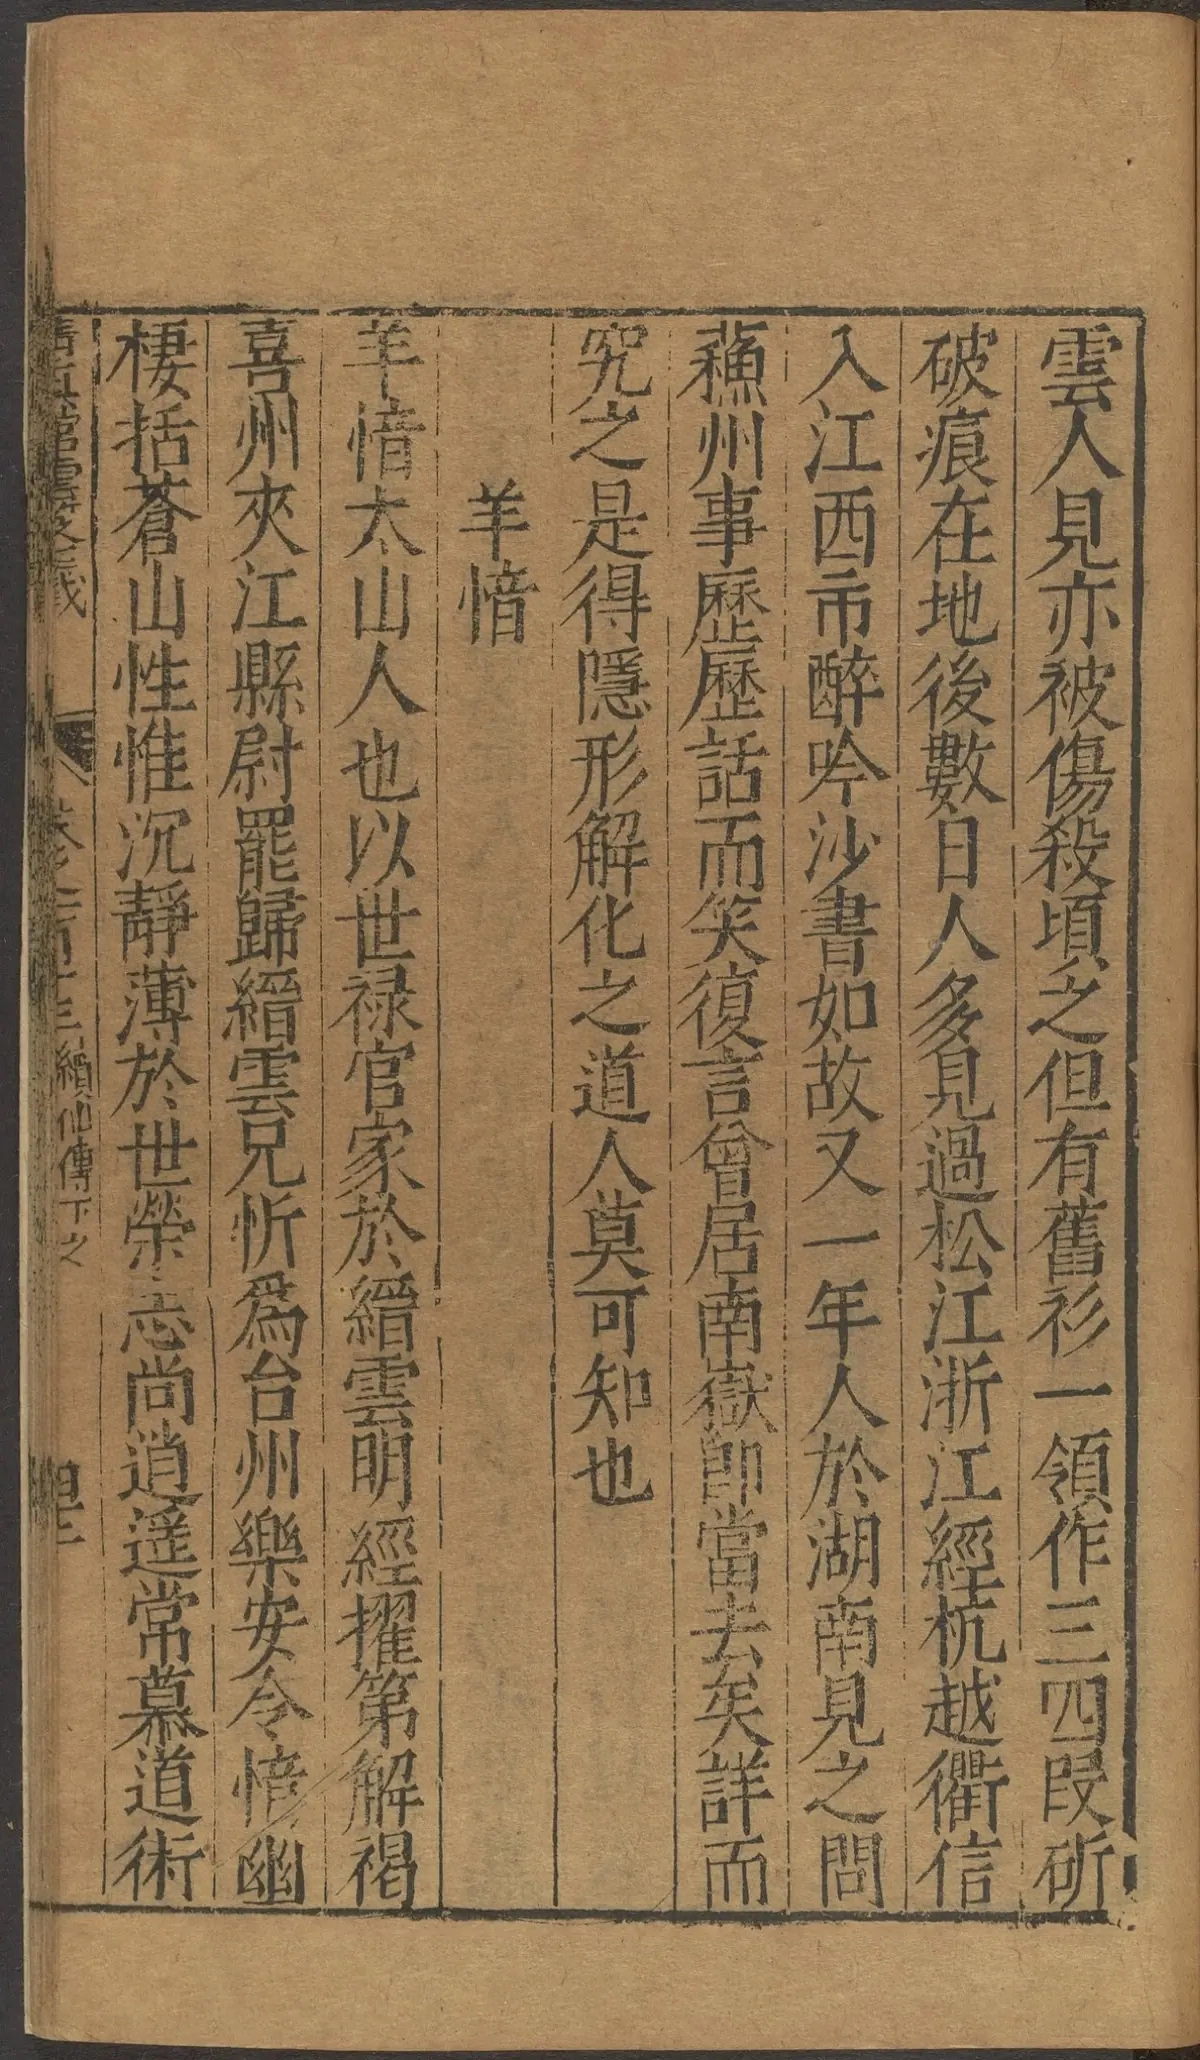 雲人見亦被傷殺頃之但有舊衫一領作三四段斫
破痕在地後數日人多見過松江浙江經杭越衢信
入江西市醉吟沙書如故又一年人於湖南見之問
蘓州事歷歷話而笑復言曾居南嶽即當去矣詳而
究之是得隱形解化之道人莫可知也
羊愔
羊愔太山人也以世禄官家於縉雲明經擢第解褐
喜州夾江縣尉罷歸縉雲兄忻為台州樂安令愔幽
棲括蒼山性惟沉靜薄於世榮志尚逍遥常慕道術
續仙傳下之